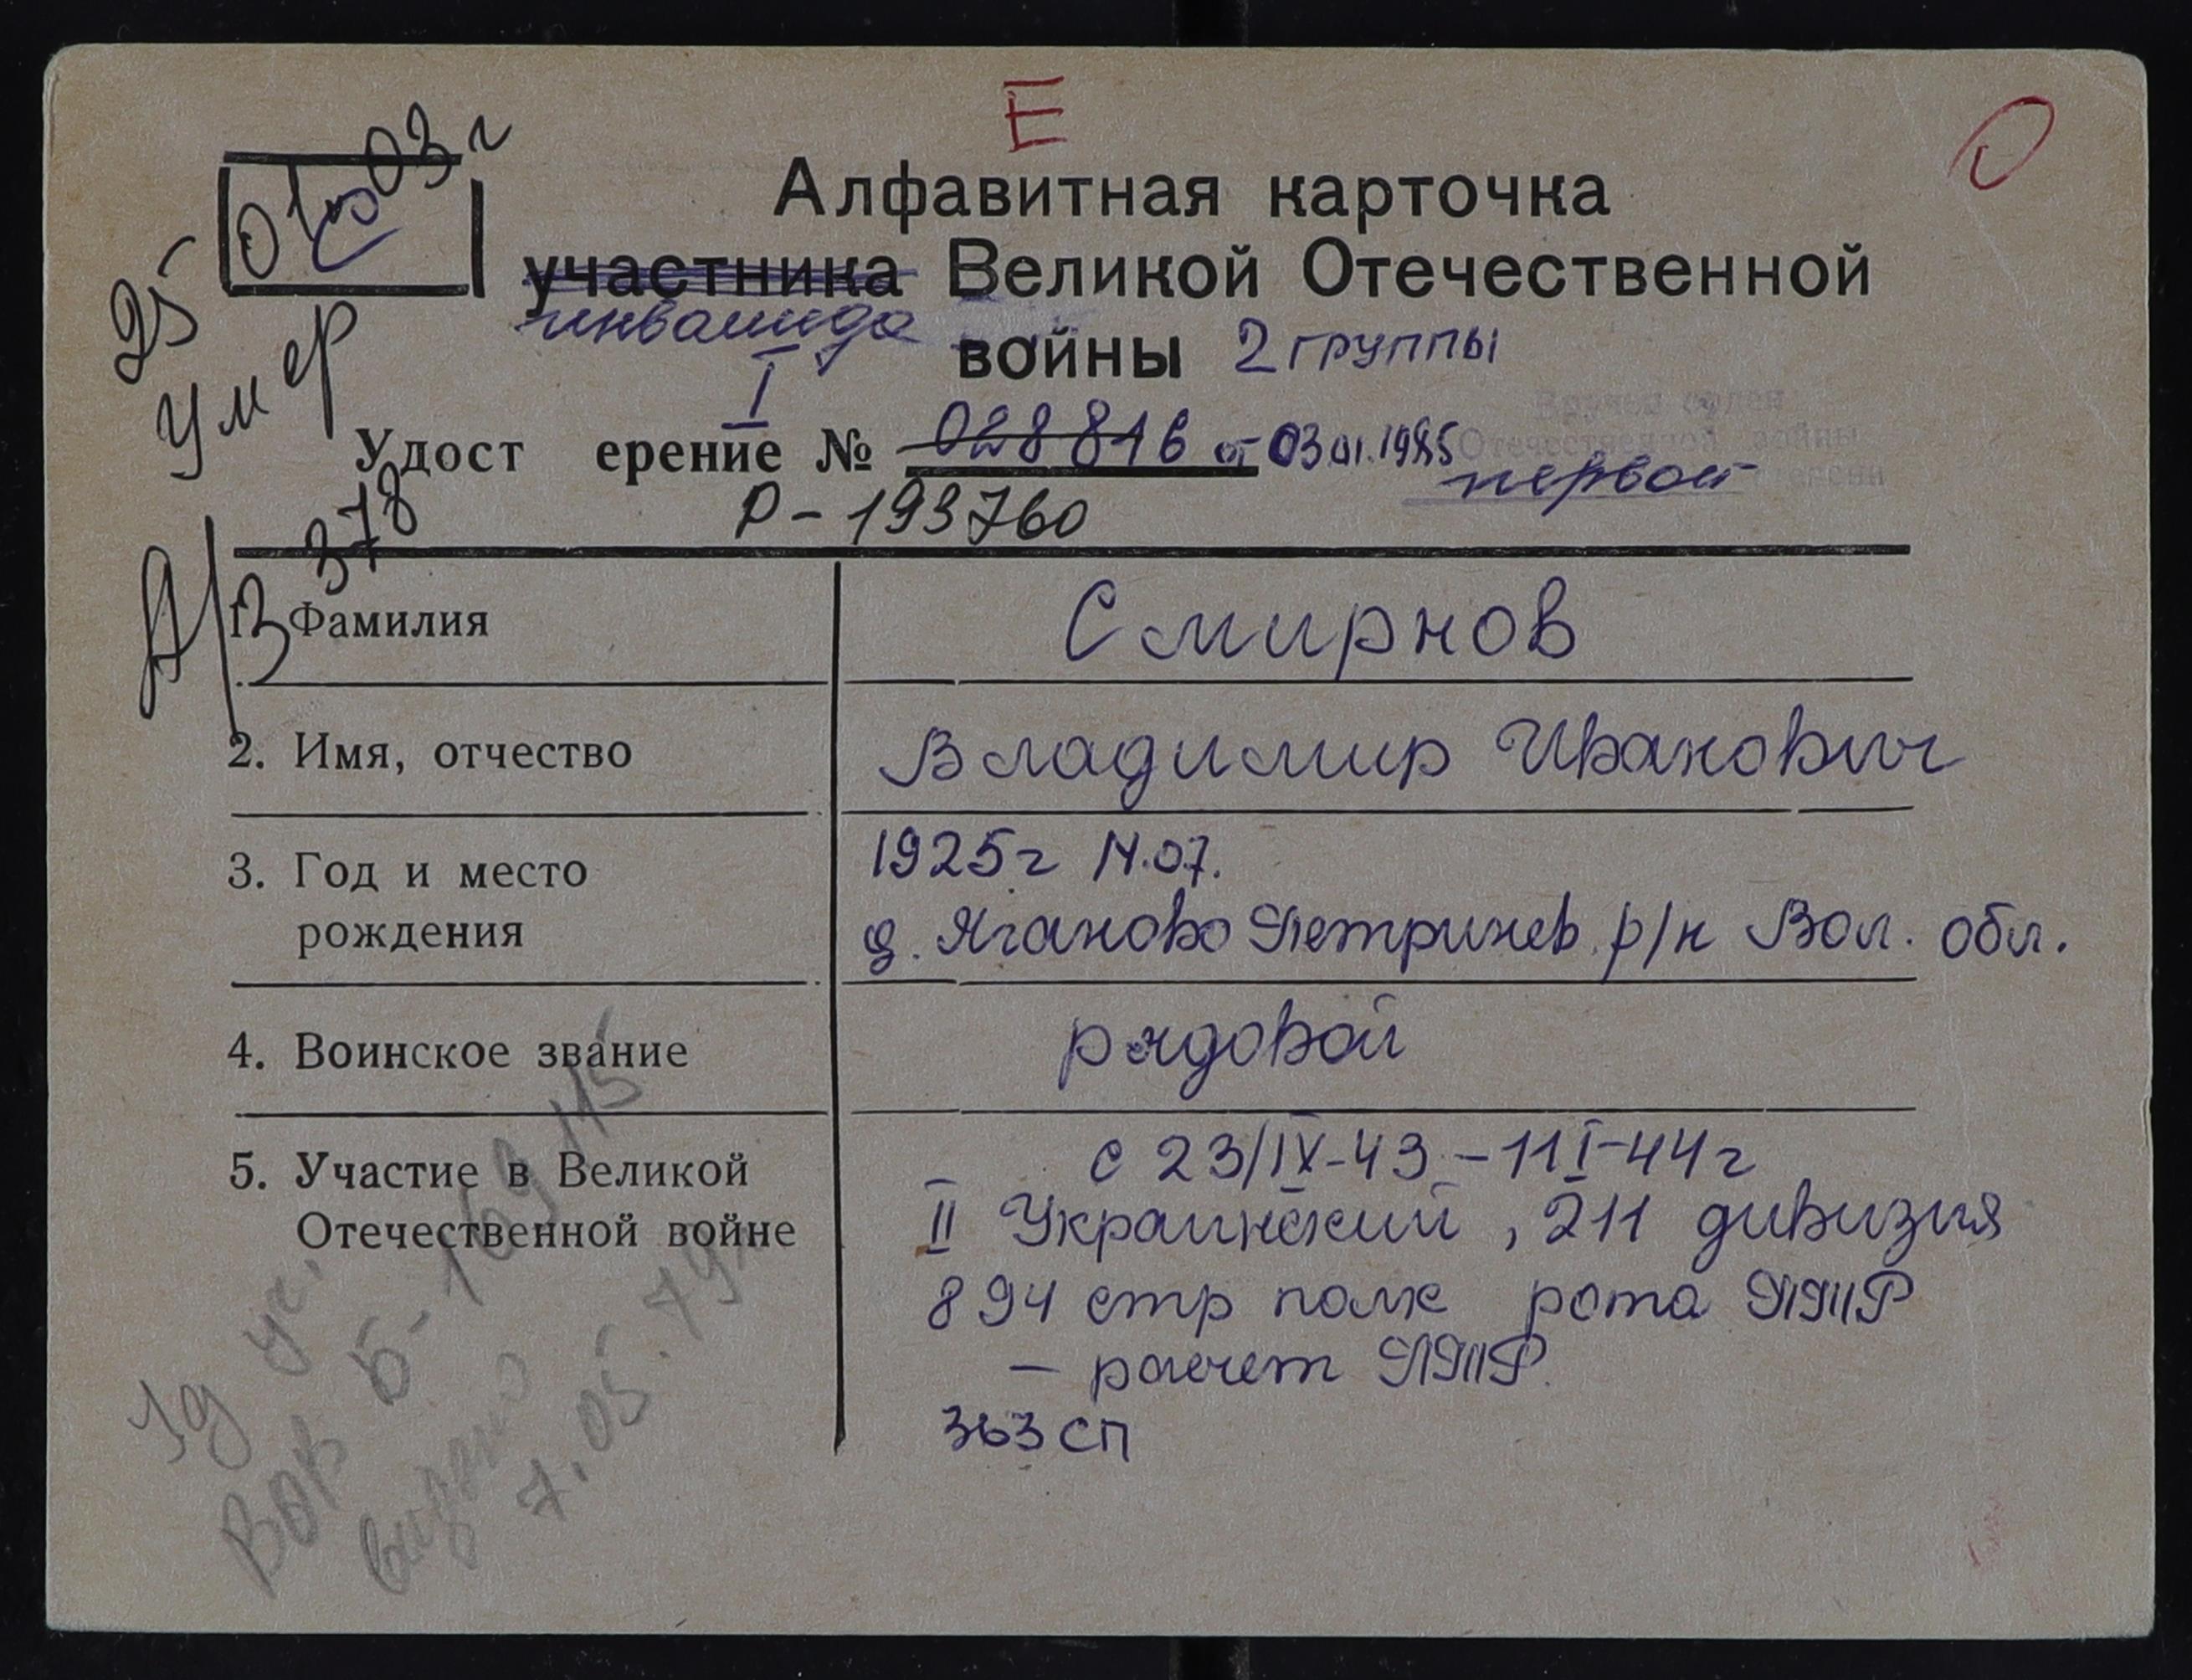 Е
О
Алфавитная карточка
участника Великой Отечественной
инвалида войны 2 группы
I
Удост ерение № 028816 от 03.01.1985
Вручен орден
Отечественной войны
первой степени
Р-193760
25 01 03 г
умер
А/В 378
1. Фамилия Смирнов
2. Имя, отчество Владимир Иванович
3. Год и место 1925г 14.07.
рождения д. Яганово Петринев р/н Вол. обл.
4. Воинское звание рядовой
5. Участие в Великой с 23/IX-43-11 I-44г
Отечественной войне II Украинский, 211 дивизия
894 стр полк рота ПТР
– расчет ПТР.
363 СП
Уд уч.
ВОВ Б-169115
выдано
7.05.79г